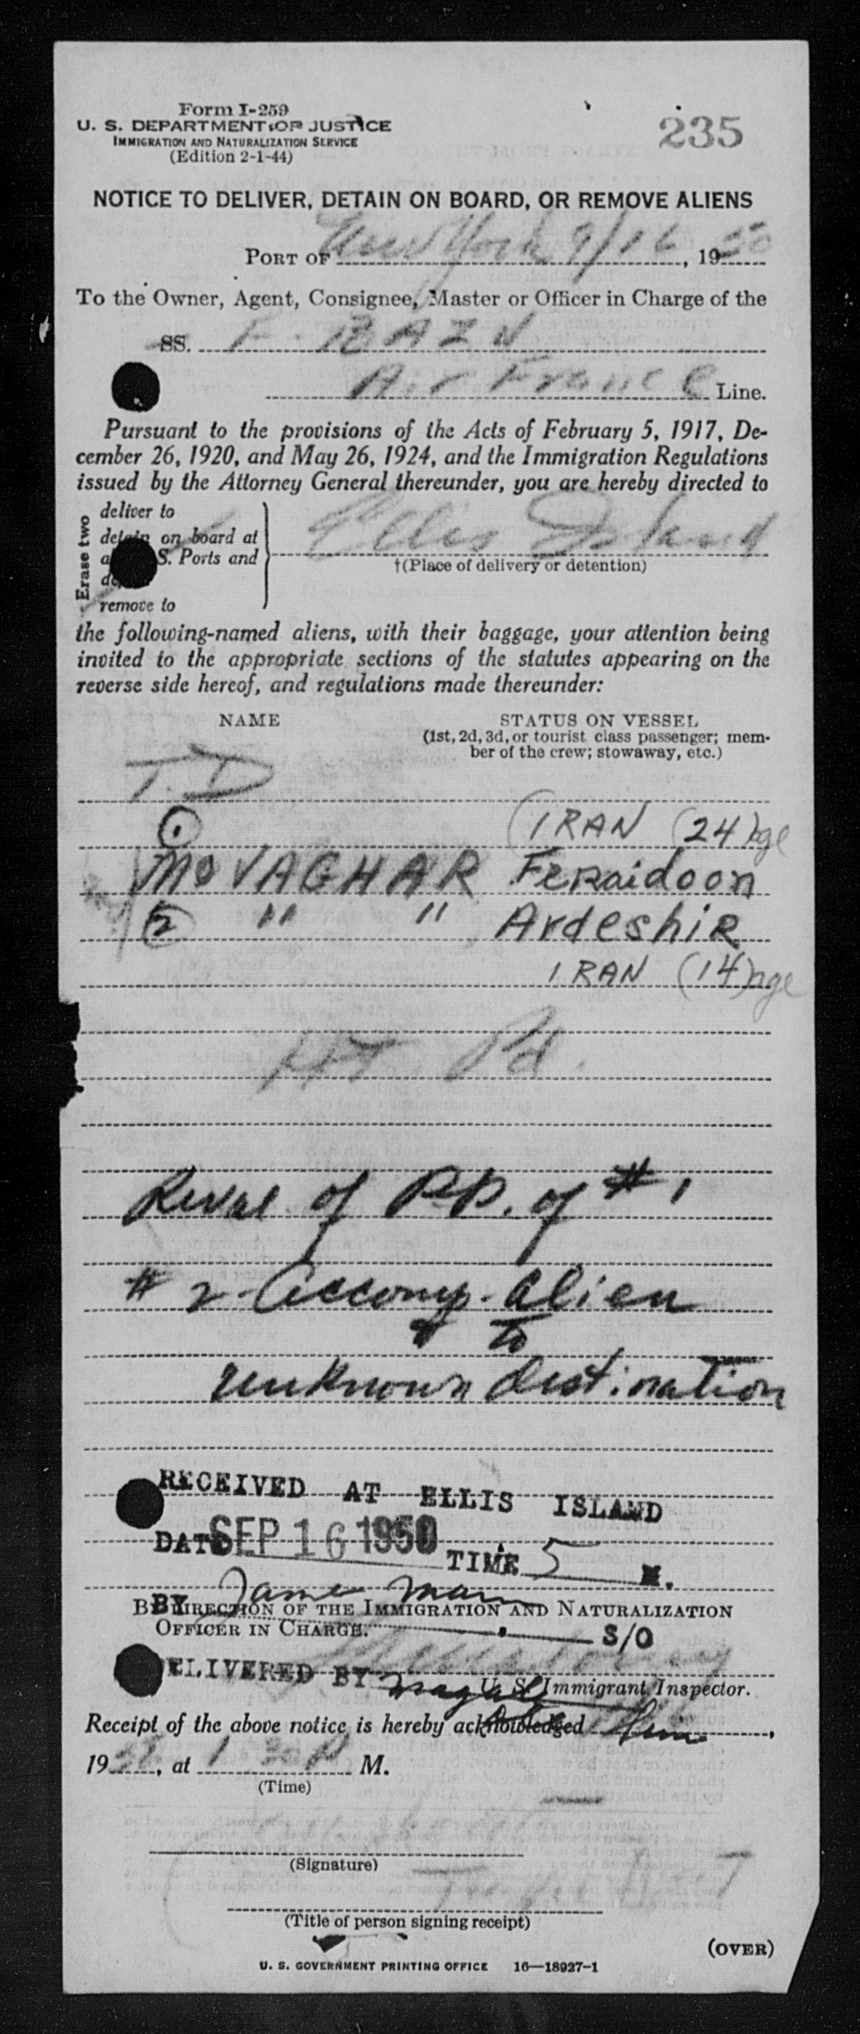 Form I-259
U. S. DEPARTMENT OF JUSTICE
IMMIGRATION AND NATURALIZATION SERVICE
(Edition 2-1-44)
235
NOTICE TO DELIVER, DETAIN ON BOARD, OR REMOVE ALIENS
PORT OF New York 9/16, 1950
To the Owner, Agent, Consignee, Master or Officer in Charge of the
SS. F. BAZN
Air France Line.
Pursuant to the provisions of the Acts of February 5, 1917, De-
cember 26, 1920, and May 26, 1924, and the Immigration Regulations
issued by the Attorney General thereunder, you are hereby directed to
Erase two
deliver to
detain on board at
S. Ports and
remove to
Ellis Island
†(Place of delivery or detention)
the following-named aliens, with their baggage, your attention being
invited to the appropriate sections of the statutes appearing on the
reverse side hereof, and regulations made thereunder:
NAME
STATUS ON VESSEL
(1st, 2d, 3d, or tourist class passenger; mem-
ber of the crew; stowaway, etc.)
T.D
1 (IRAN (24) age
MOVAGHAR Feraidoon
2 " " ArdeshiR
IRAN (14) age
HT Pd.
of PP. of # 1
# 2 - Accomp. alien
to
unknown destination
RECEIVED AT ELLIS ISLAND
DATE SEP 16 1950 TIME 5 M.
BY
BY DIRECTION OF THE IMMIGRATION AND NATURALIZATION
OFFICER IN CHARGE.
S/O
DELIVERED BY
U. S. Immigrant Inspector.
Receipt of the above notice is hereby acknowledged
1950, at 1 30 P M.
(Time)
(Signature)
(Title of person signing receipt)
(OVER)
U. S. GOVERNMENT PRINTING OFFICE 16—18927-1